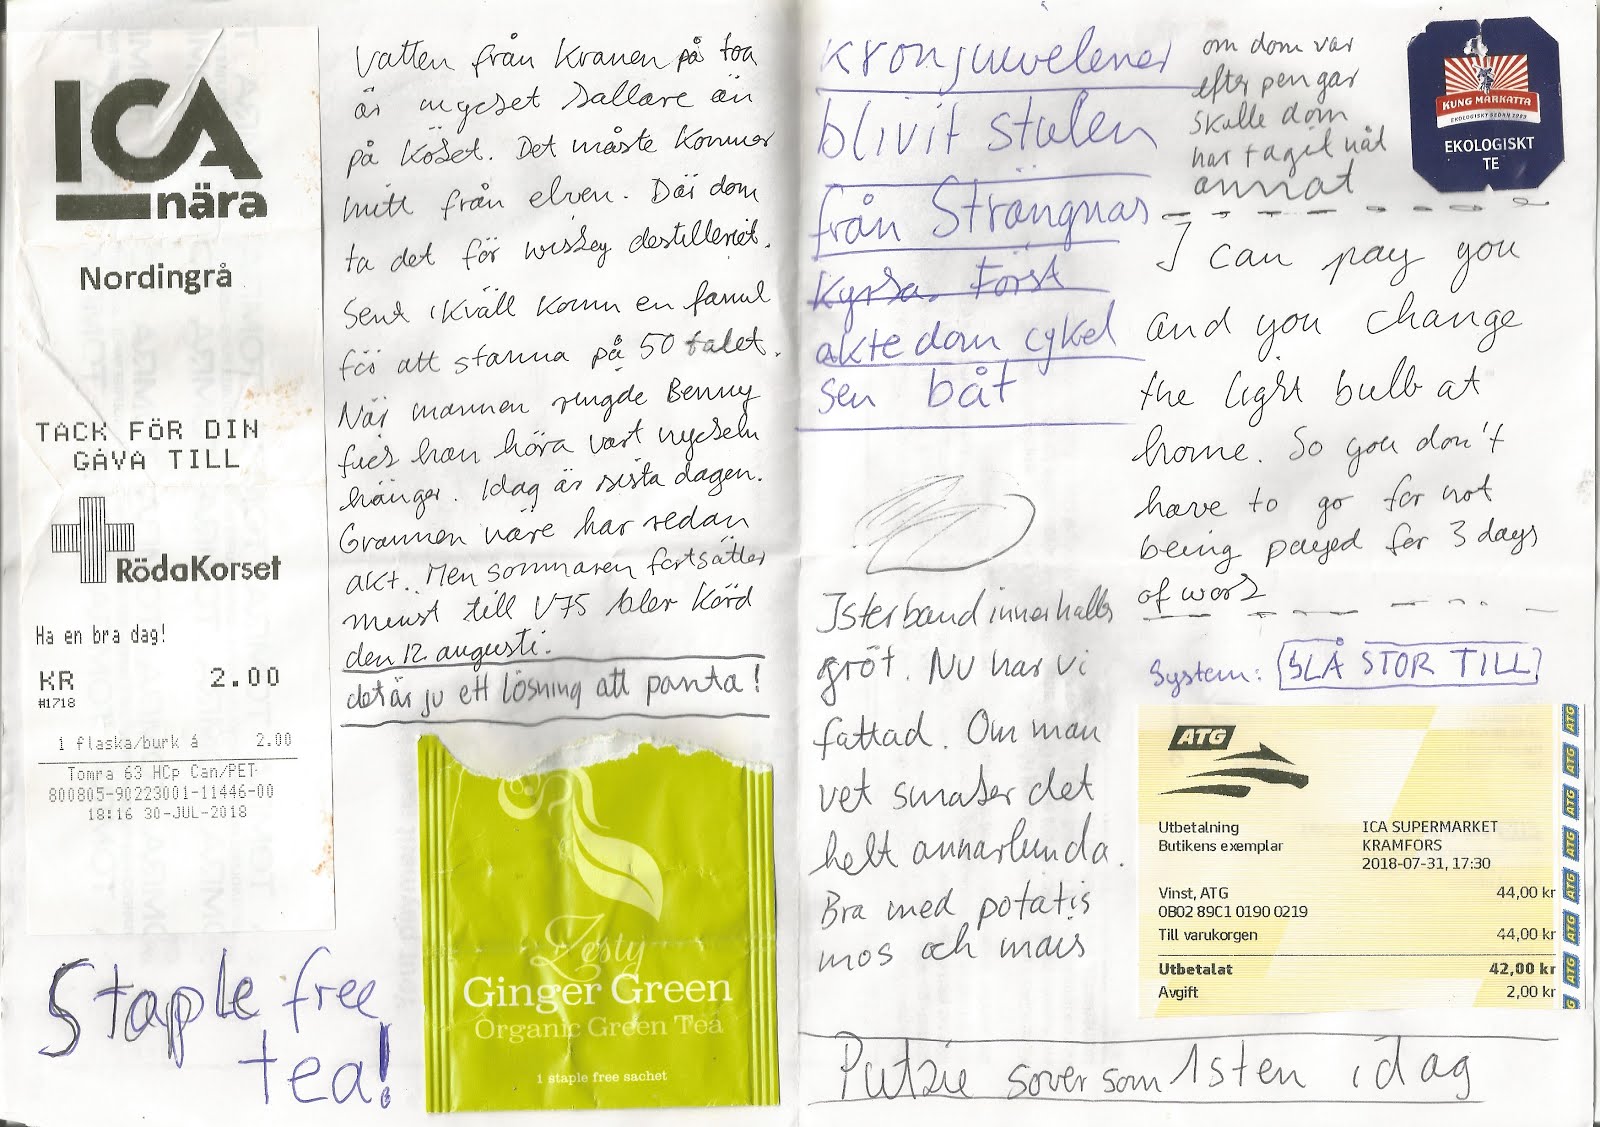 ICA
nära
Nordingrå
TACK FÖR DIN
GÅVA TILL
RödaKorset
Ha en bra dag!
KR 2.00
#1718
1 flaska/burk á 2.00
Tomra 63 HCp Can/PET
800805-90223001-11446-00
18:16 30-JUL-2018
Staple free
tea!
Vatten från Kranen på toa
är mycket kallare än
på köket. Det måste kommer
mitt från elven. Där dom
ta det för wiskey destilleriet.
Sent i kväll komm en famil
för att stanna på 50 talet.
När mannen ringde Benny
fick han höra vart nyckeln
hänger. Idag är sista dagen.
Grannen näre har redan
akt. Men sommaren fortsätter
minst till V75 bler körd
den 12 augusti.
det är ju ett lösning att panta!
Zesty
Ginger Green
Organic Green Tea
1 staple free sachet
Kronjuvelener
blivit stulen
från Strängnäs
Kyrka. Först
akte dom cykel
sen båt
om dom var
efter pengar
skulle dom
har tagit nåt
annat
KUNG MARKATTA
EKOLOGISKT SEDAN 1983
EKOLOGISKT
TE
I can pay you
and you change
the light bulb at
home. So you don't
have to go for not
being payed for 3 days
of work
Isterband innerhalls
gröt. Nu har vi
fattad. Om man
vet smaker det
helt annarlunda.
Bra med potatis
mos och mais
System: SLÅ STOR TILL
ATG
Utbetalning ICA SUPERMARKET
Butikens exemplar KRAMFORS
2018-07-31, 17:30
Vinst, ATG 44,00 kr
0B02 89C1 0190 0219
Till varukorgen 44,00 kr
Utbetalat 42,00 kr
Avgift 2,00 kr
ATG
ATG
ATG
ATG
ATG
ATG
ATG
Putzie sover som 1sten idag